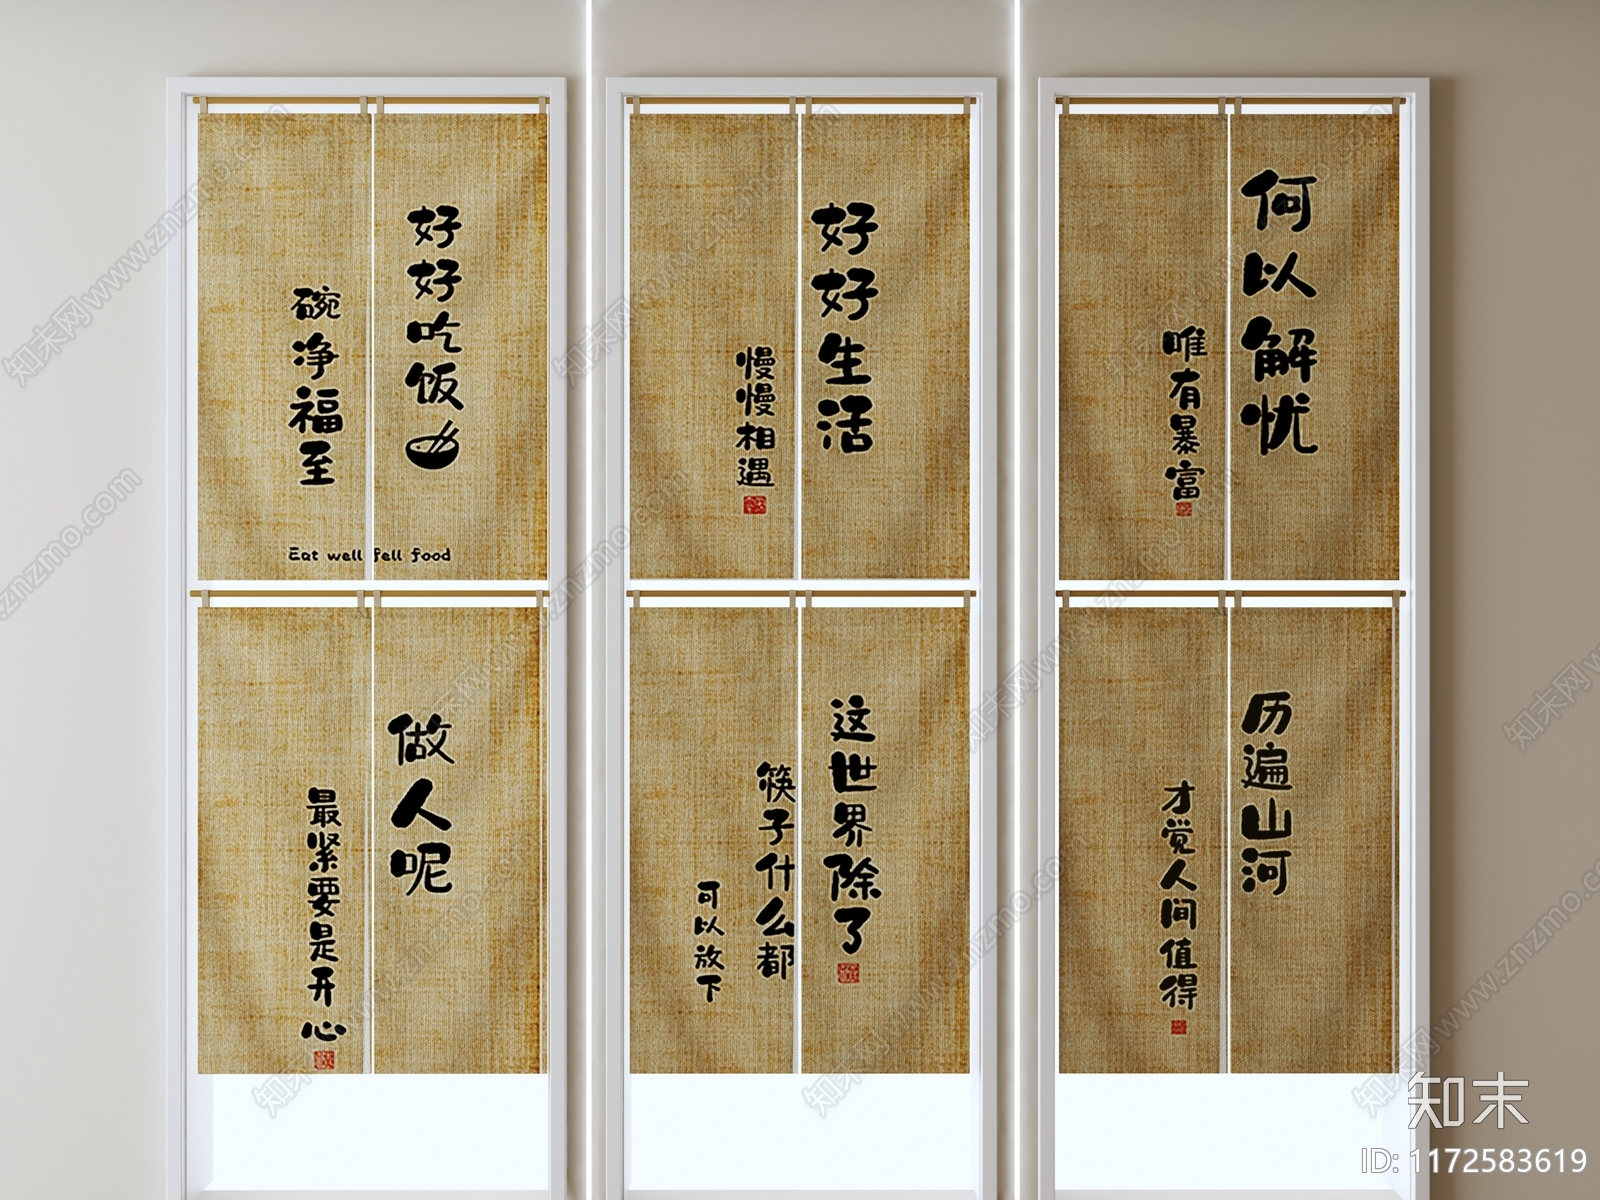 好好吃饭
碗净福至
Eat well fell food
好好生活
慢慢相遇
何以解忧
唯有暴富
做人呢
最紧要是开心
这世界除了
筷子什么都
可以放下
历遍山河
才觉人间值得
知末
ID: 1172583619
知末网www.znzmo.com